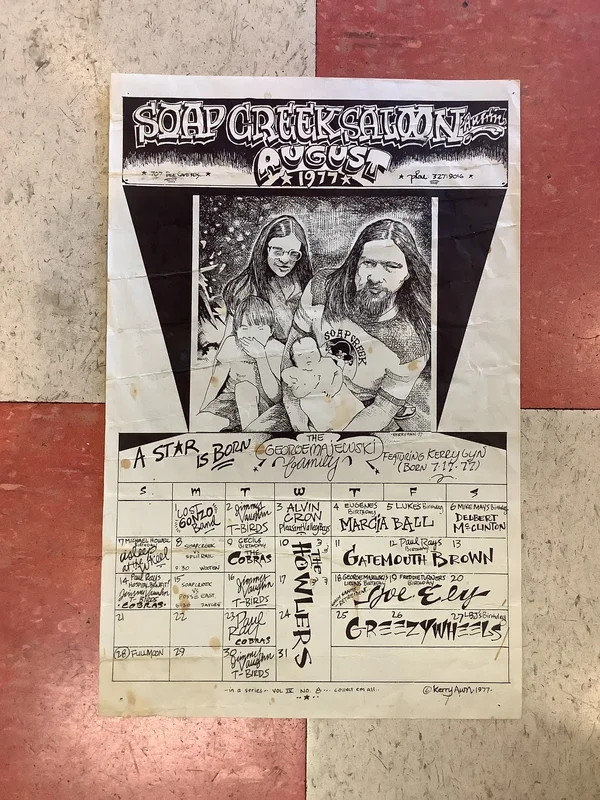 SOAP CREEK SALOON Austin
AUGUST
★ 1977 ★
★ 707 Bee Caves Rd. ★
★ phone 327-9016 ★
SOAP CREEK
A STAR IS BORN
THE GEORGE MAJEWSKI family
FEATURING KERRY GYN
(BORN 7-17-77)
S M T W T F S
1 LOST GONZO Band
2 Jimmy Vaughn T-BIRDS
3 ALVIN CROW Pleasant Valley Boys
4 EUGENES Birthday
5 LUKES Birthday
MARCIA BALL
6 MIKE MAYS Birthday
DELBERT McCLINTON
7 MICHAEL
Birthday
asleep at the Wheel
8 SOAPCREEK VS SPLIT RAIL
9:30
9 CECILS BIRTHDAY
THE COBRAS
10
THE HOWLERS
11
12 Paul Rays Birthday
13
GATEMOUTH BROWN
14 Paul Rays
Jimmy Vaughn
T-BIRDS
COBRAS
15 SOAPCREEK VS POSSE EAST
16 Jimmy Vaughn T-BIRDS
17
18 GEORGE MAJEWSKI'S
19 FREDDIE TURNERS Birthday
20
Joe Ely
21
22
23 Paul Ray COBRAS
24
25
26
27 LBJ's Birthday
GREEZY WHEELS
(28) FULL MOON
29
30 Jimmy Vaughn T-BIRDS
31
--in a series-- VOL IV NO. 8 --- collect em all--
© Kerry Awn 1977-